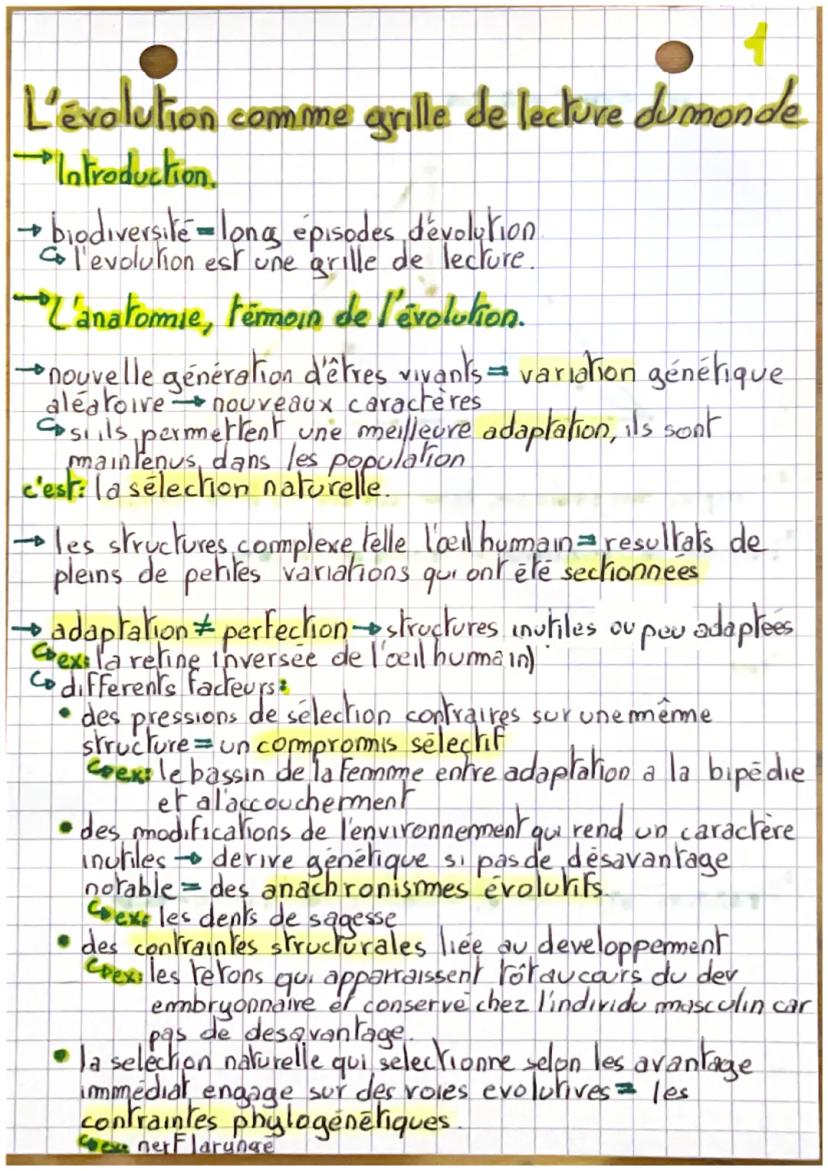 1
L'évolution comme grille de lecture du monde
→ Introduction.
→ biodiversité = long épisodes d'évolution
↳ l'evolution est une grille de lecture.
→ L'anatomie, témoin de l'évolution.
→ nouvelle génération d'êtres vivants = variation génétique
aléatoire → nouveaux caractères
↳ si ils permettent une meilleure adaptation, ils sont
maintenus dans les population
c'est: la sélection naturelle.
→ les structures complexe telle l'œil humain = resultats de
pleins de petites variations qui ont été sectionnées
→ adaptation ≠ perfection → structures inutiles ou peu adaptées
↳ ex: la retine inversée de l'œil humain)
↳ differents facteurs:
• des pressions de sélection contraires sur une même
structure = un compromis sélectif
↳ ex: le bassin de la femme entre adaptation a la bipédie
et a l'accouchement
• des modifications de l'environnement qui rend un caractère
inutiles → derive génétique si pas de désavantage
notable = des anachronismes évolutifs.
↳ ex: les dents de sagesse
• des contraintes structurales liée au developpement
↳ ex: les tetons qui apparraissent tôt au cours du dev
embryonnaire et conservé chez l'individu masculin car
pas de desavantage.
• la selection naturelle qui selectionne selon les avantage
immédiat engage sur des voies evolutives = les
contraintes phylogénétiques.
↳ ex: nerf larynge